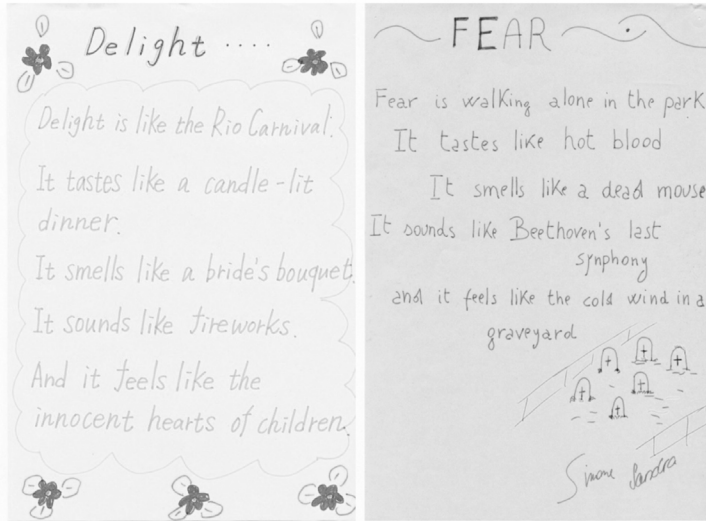 Delight ....
Delight is like the Rio Carnival.
It tastes like a candle-lit
dinner.
It smells like a bride's bouquet.
It sounds like fireworks.
And it feels like the
innocent hearts of children.
FEAR
Fear is walking alone in the park
It tastes like hot blood
It smells like a dead mouse
It sounds like Beethoven's last
synphony
and it feels like the cold wind in a
graveyard
Simone Sandra